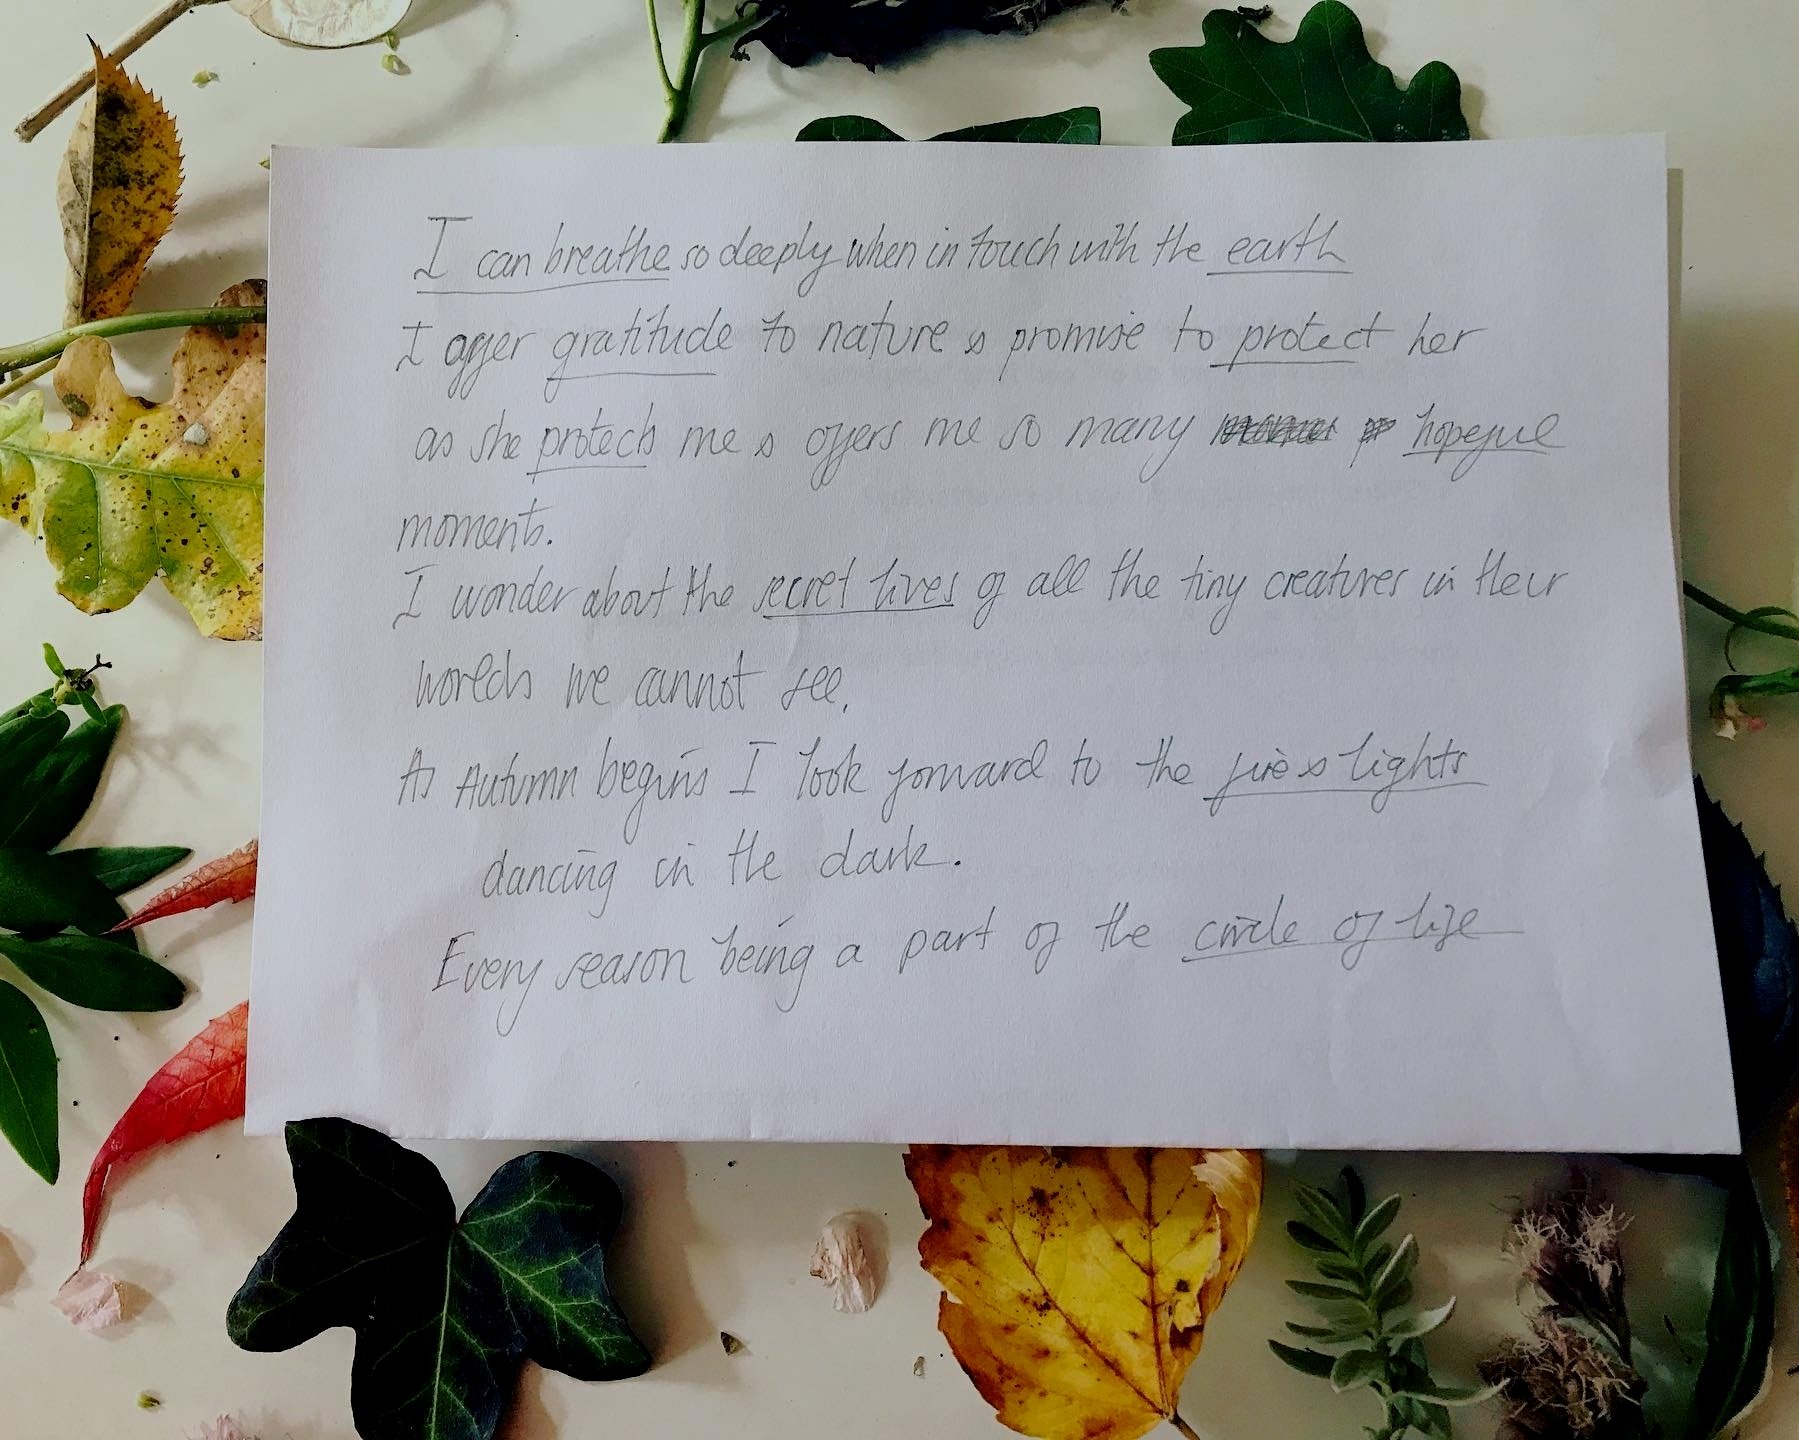 I can breathe so deeply when in touch with the earth
I offer gratitude to nature & promise to protect her
as she protects me & offers me so many hopeful
moments.
I wonder about the secret lives of all the tiny creatures in their
worlds we cannot see.
As Autumn begins I look forward to the fire & lights
dancing in the dark.
Every season being a part of the circle of life